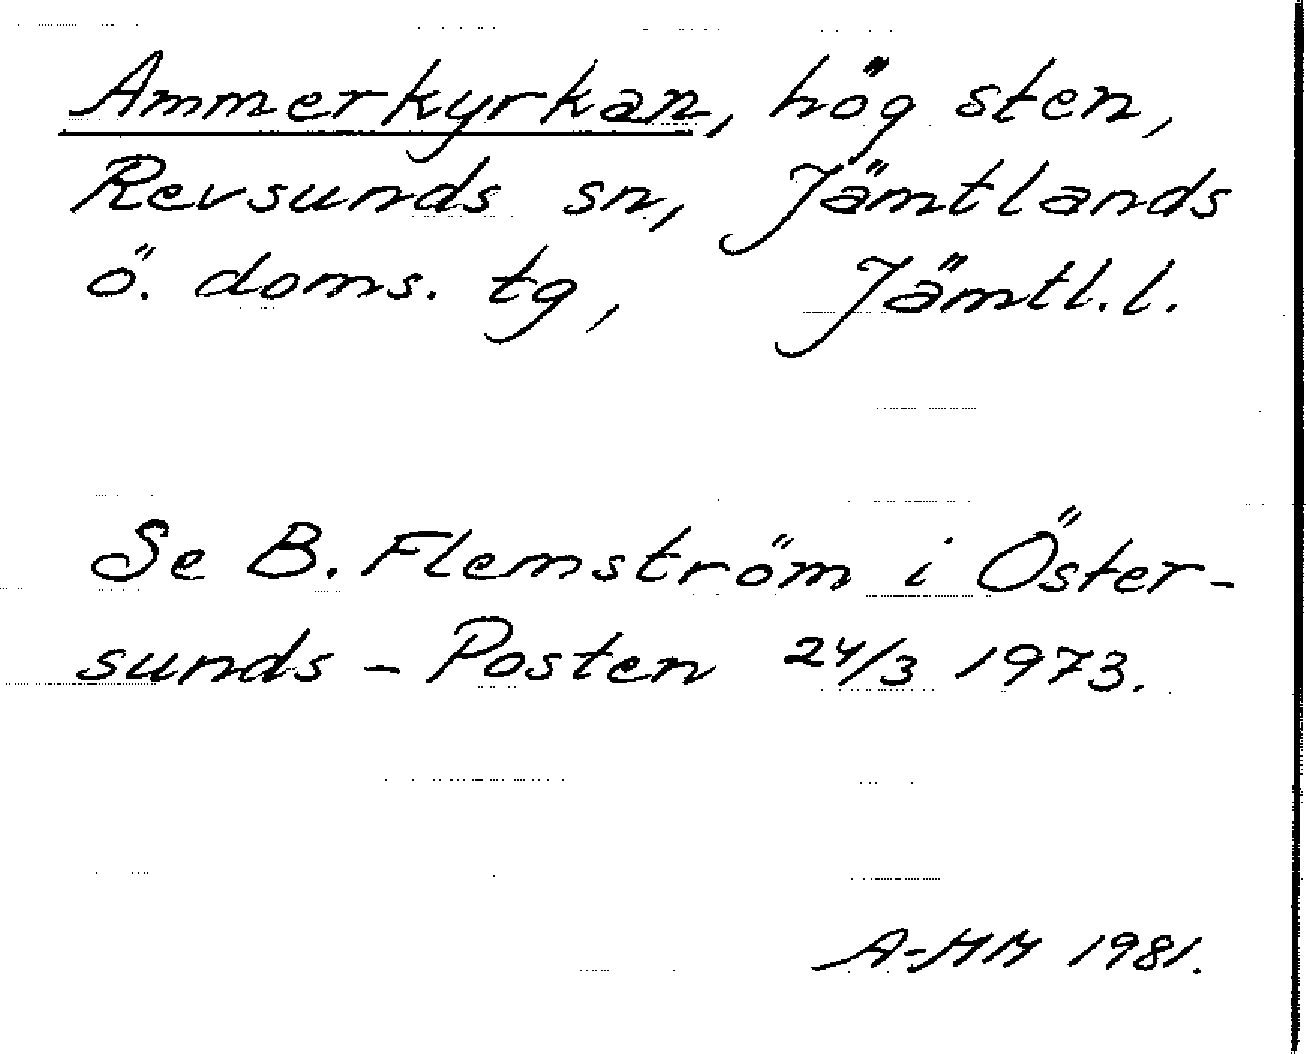 Ammerkyrkan, hög sten,
Revsunds sn, Jämtlands
ö. doms. tg, Jämtl. l.
Se B. Flemström i Öster-
sunds-Posten 24/3 1973.
A-HM 1981.